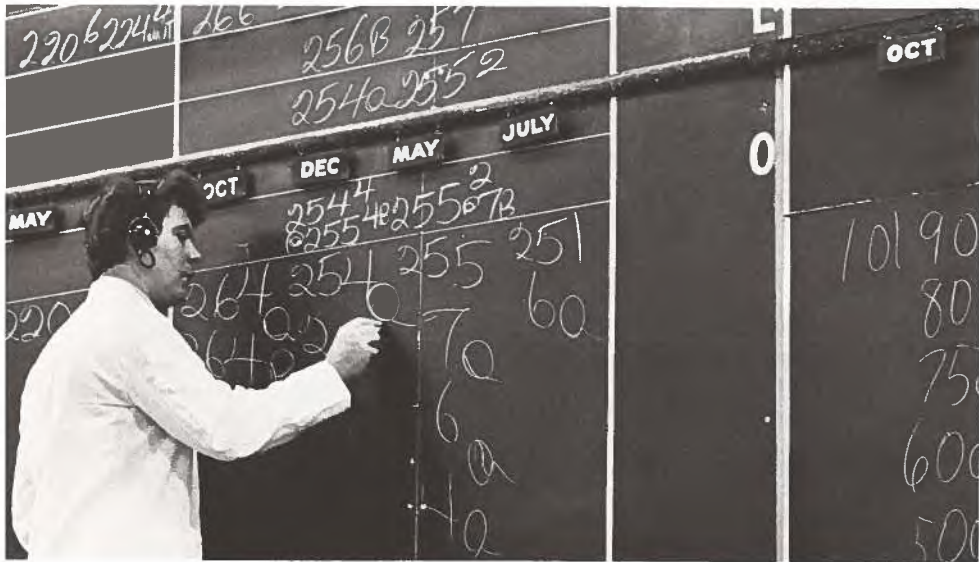 220 6 224 4
266
256B 257
254a 255 2
L
O
MAY
OCT
DEC
MAY
JULY
OCT
254 4
255 4B 255 2
6 7B
220
264 254 255 251
a a 7a 6a
264a 2
6a
4a
101 90
80
75
600
500